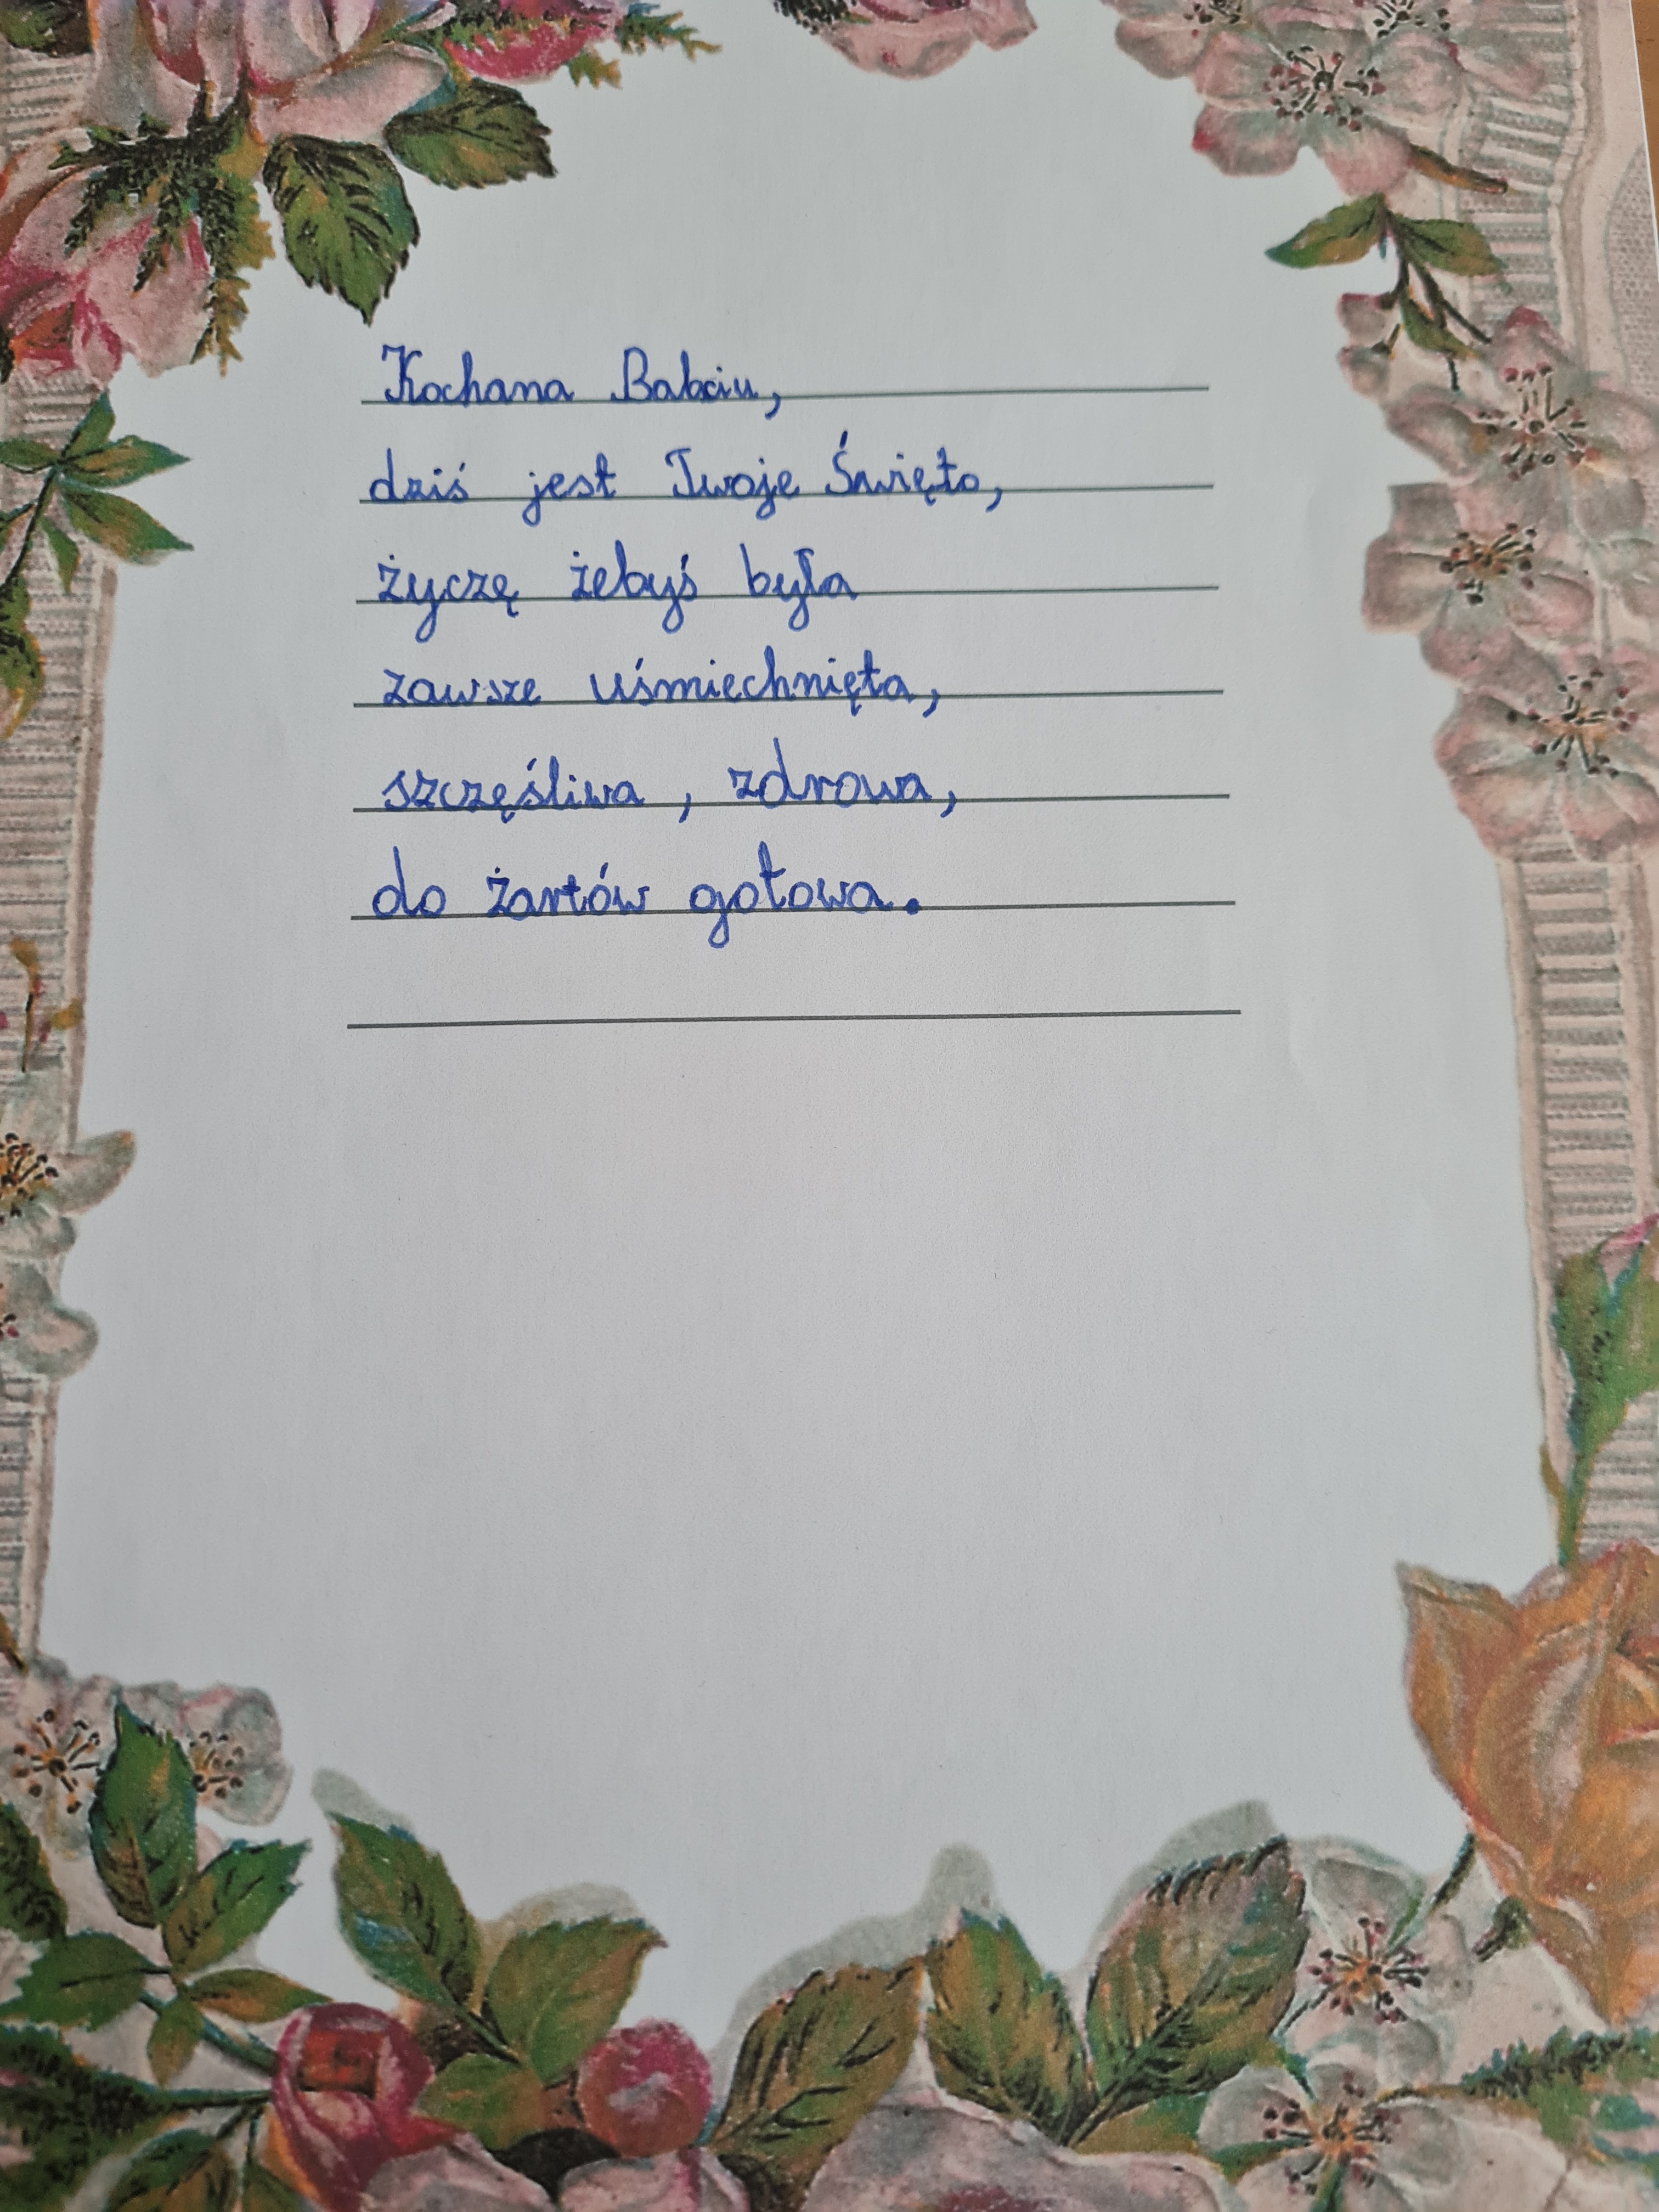 Kochana Babciu,
dziś jest Twoje Święto,
życzę żebyś była
zawsze uśmiechnięta,
szczęśliwa , zdrowa,
do żartów gotowa.